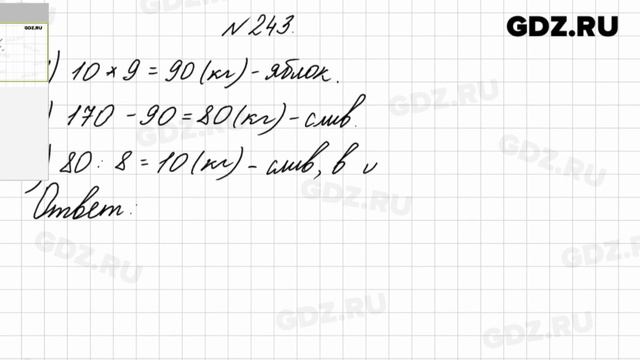 № 243.
GDZ.RU
) 10 × 9 = 90 (кг) - яблок.
) 170 - 90 = 80 (кг) - слив.
) 80 : 8 = 10 (кг) - слив, в
Ответ:
GDZ.RU
GDZ.RU
GDZ.RU
GDZ.RU
GDZ.RU
GDZ.RU
GDZ.RU
GDZ.RU